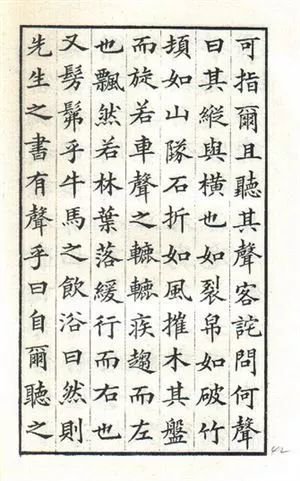 可指爾且聽其聲客詫問何聲
曰其縱與橫也如裂帛如破竹
頓如山隊石折如風摧木其盤
而旋若車聲之轆轆疾趨而左
也飄然若林葉落緩行而右也
又髣髴乎牛馬之飲浴曰然則
先生之書有聲乎曰自爾聽之
42